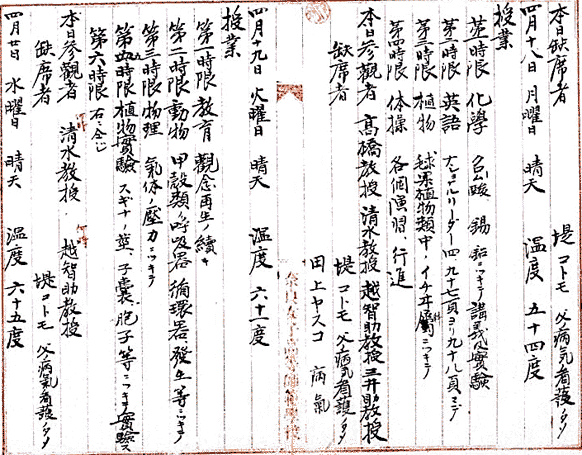 本日缺席者 堤コトモ 父病氣看護ノタメ
四月十八日 月曜日 晴天 温度 五十四度
授業
第一時限 化學 錫 鉛ニツキテ講義及實驗
第二時限 英語 ナショナルリーダー四 九十七頁ヨリ九十八頁マデ
第三時限 植物 球果植物類中、イチヰ屬ニツキテ
第四時限 体操 各個演習 行進
本日参觀者 高橋教授 清水教授 越智助教授 三井助教授
缺席者 堤コトモ 父病氣看護ノタメ
田上ヤスコ 病氣
四月十九日 火曜日 晴天 温度 六十一度
授業
第一時限 教育 觀念再生ノ續キ
第二時限 動物 甲殼類ノ呼吸器 循環器 發生等ニツキテ
第三時限 物理 氣体ノ壓力ニツキテ
第五時限 植物實驗 スギナノ莖、子囊、胞子等ニツキテ實驗ス
第六時限 右ニ仝ジ
本日参觀者 清水教授 越智助教授
缺席者 堤コトモ 父病氣看護ノタメ
四月廿日 水曜日 晴天 温度 六十五度
奈良女子高等師範學校